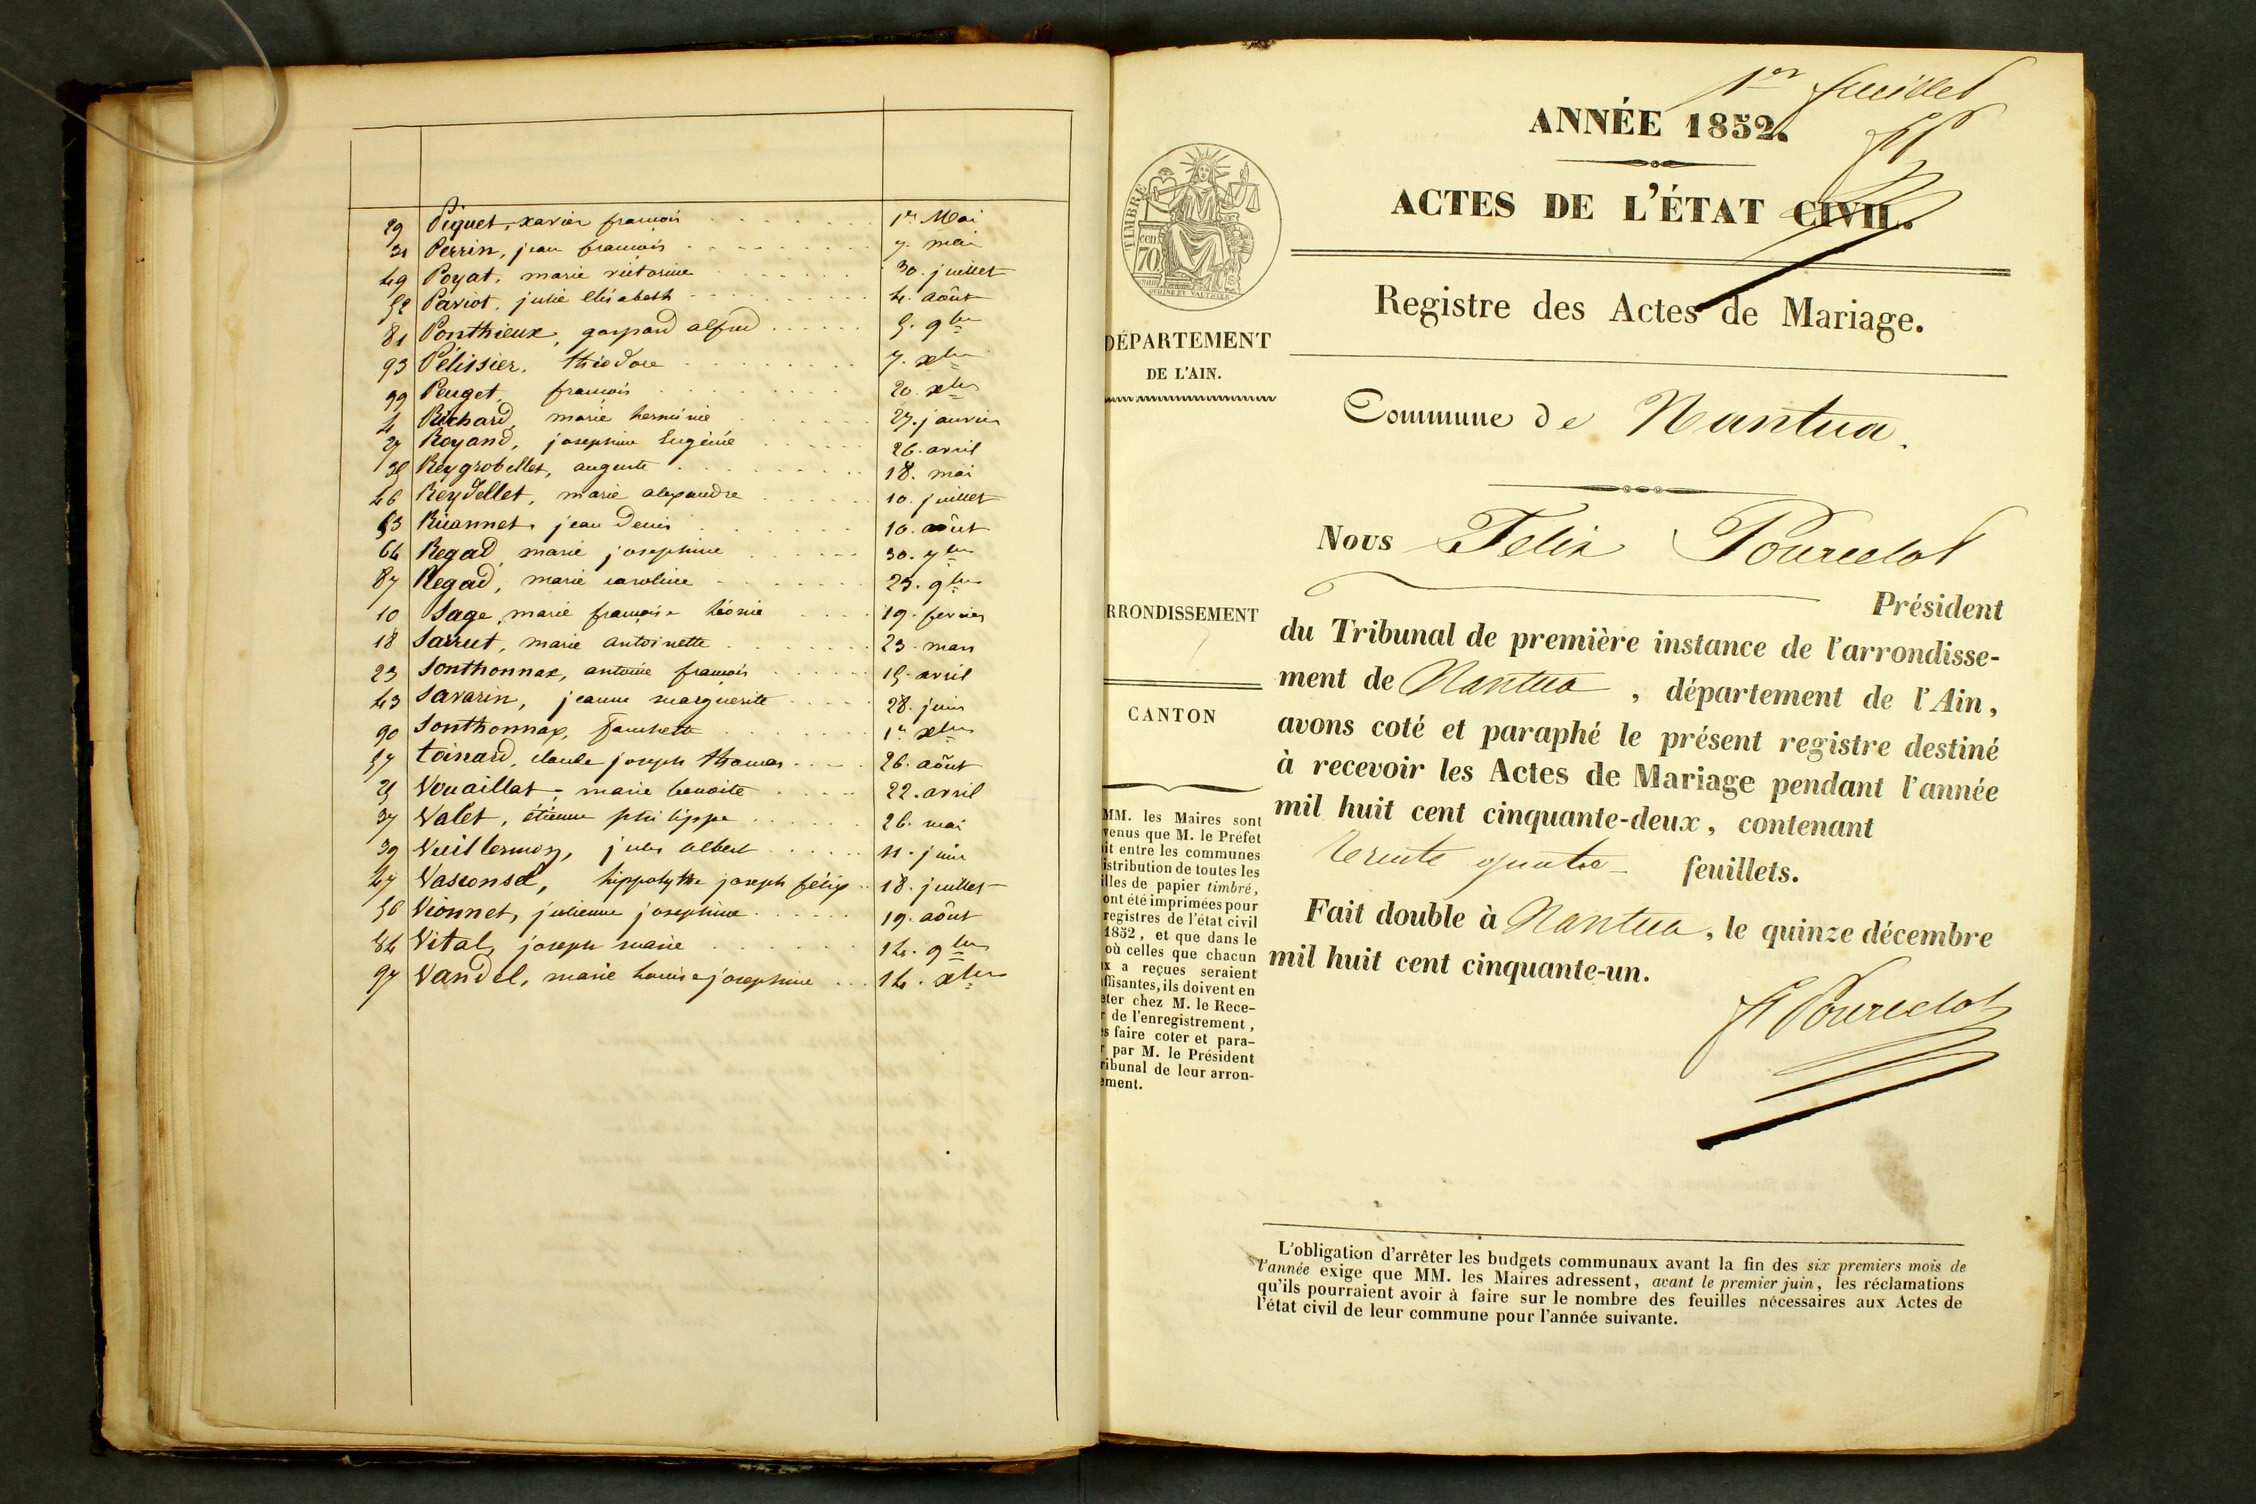 29 Piquet, xavier françois 1er Mai
31 Perrin, jean françois 7. mai
49 Poyat, marie victorine 30. juillet
52 Pariot, julie Elisabeth 4. août
81 Ponthieux, gaspard alfred 5. 9bre
93 Pélissier, théodore 7. xbre
99 Peuget, françois 20. xbre
4 Richard, marie herminie 27. janvier
27 Royand, josephine Eugénie 26. avril
35 Reygrobellet, auguste 18. mai
46 Reydellet, marie alexandre 10. juillet
53 Ruannet, jean Denis 10. août
66 Regad, marie josephine 30. 7bre
87 Regad, marie caroline 25. 9bre
10 Sage, marie françoise léonie 19. fevrier
18 Sarrut, marie antoinette 23. mars
23 Sonthonnax, antoine françois 15. avril
43 Savarin, jeanne marguerite 28. juin
90 Sonthonnax, Fanchette 1er xbre
57 toinard, claude joseph thomas 26. août
25 Vouaillat, marie benoite 22. avril
37 Valet, étienne philippe 26. mai
39 Vuillermoz, jules albert 11. juin
47 Vasconsel, hippolythe joseph félix 18. juillet
56 Vionnet, julienne josephine 19. août
84 Vital, joseph marie 14. 9bre
97 Vandel, marie Louise josephine 14. xbre
1er feuillet
ANNÉE 1852.
ACTES DE L'ÉTAT CIVIL.
TIMBRE
cen
70
Registre des Actes de Mariage.
DÉPARTEMENT
DE L'AIN.
Commune de Nantua.
Nous Felix Pourcelot
Président
du Tribunal de première instance de l'arrondisse-
ment de Nantua, département de l'Ain,
avons coté et paraphé le présent registre destiné
à recevoir les Actes de Mariage pendant l'année
mil huit cent cinquante-deux, contenant
trente quatre feuillets.
Fait double à Nantua, le quinze décembre
mil huit cent cinquante-un.
F Pourcelot
RRONDISSEMENT
CANTON
MM. les Maires sont
venus que M. le Préfet
it entre les communes
istribution de toutes les
illes de papier timbré,
ont été imprimées pour
registres de l'état civil
1852, et que dans le
où celles que chacun
x a reçues seraient
ffisantes, ils doivent en
eter chez M. le Rece-
r de l'enregistrement,
es faire coter et para-
r par M. le Président
ribunal de leur arron-
ement.
L'obligation d'arrêter les budgets communaux avant la fin des six premiers mois de
l'année exige que MM. les Maires adressent, avant le premier juin, les réclamations
qu'ils pourraient avoir à faire sur le nombre des feuilles nécessaires aux Actes de
l'état civil de leur commune pour l'année suivante.